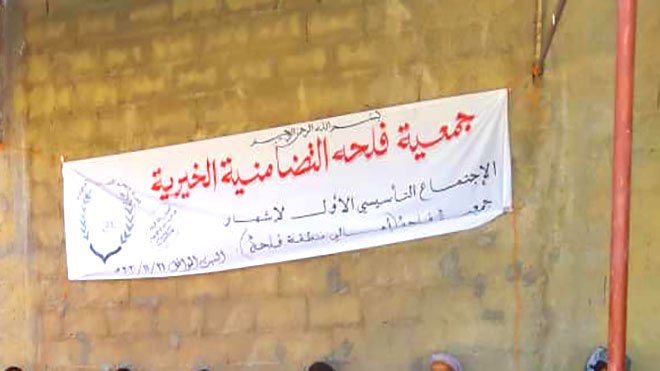 بسم الله الرحمن الرحيم
جمعية فلحه التضامنية الخيرية
الإجتماع التأسيسي الاول لإشهار
جمعية فلحة (أهالي منطقة فلحة)
الموافق ٢١/١١/